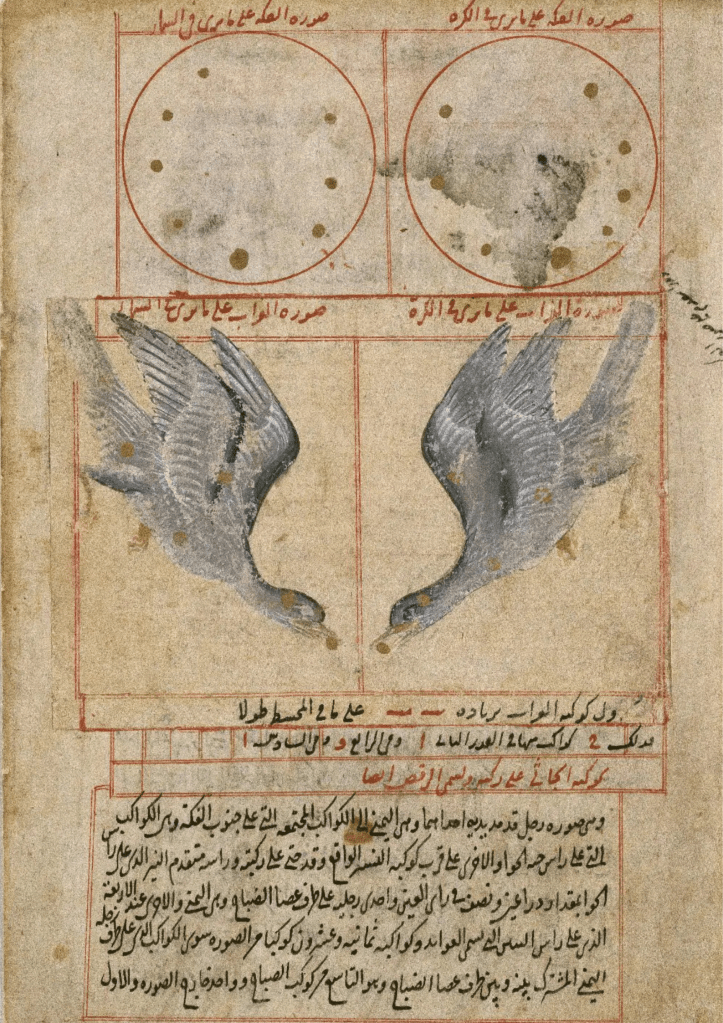 صورة الفكه على ما يرى في الكرة
صورة الفكه على ما يرى في السما
صورة الغراب على ما يرى في الكرة
صورة الغراب على ما يرى في السما
كوكبه الغراب بزياده على ما في المجسطي طولا
فذلك كواكب منها في القدر الثالث ا وفي الرابع و وفي السادس ا
كوكبة الجاثي على ركبتيه ويسمى الراقص ايضا
وهي صورة رجل قد مد يديه احداهما وهي اليمنى الى الكواكب المجتمعة التي على جنوب الفكة وهي الكواكب
التي على راس حية الحوا والاخرى على قرب كوكبة النسر الواقع وقد جثى على ركبتيه وراسه متقدم النير الذي على راس
الحوا بمقدار ذراعين ونصف في راى العين واحدى رجليه على طرف عصا الصياح وهي اليمنى والاخرى عند الاربعة
التي على راس التنين التي تسمى العوايد وكواكبه ثمانية وعشرون كوكبا من الصورة سوى الكواكب الذي على طرف رجله
اليمنى المشترك بينه وبين طرف عصا الصياح وهو التاسع من كوكبة الصياح وواحد خارج الصورة والاول